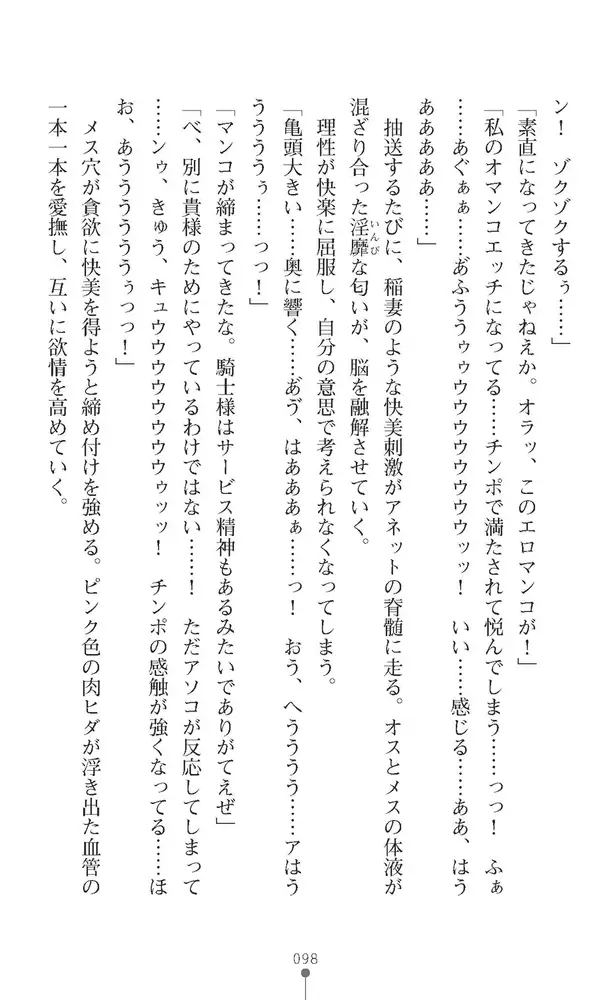 ン！　ゾクゾクするぅ……」
「素直になってきたじゃねえか。オラッ、このエロマンコが！」
「私のオマンコエッチになってる……チンポで満たされて悦んでしまう……っっ！　ふぁ
……あぐぁぁ……あ゛ふううゥゥウウウウウウウウッッ！　いい……感じる……ああ、はう
あああああ……」
　抽送するたびに、稲妻のような快美刺激がアネットの脊髄に走る。オスとメスの体液が
混ざり合った淫靡な匂いが、脳を融解させていく。
いんび
　理性が快楽に屈服し、自分の意思で考えられなくなってしまう。
「亀頭大きい……奥に響く……あ゛ゔ、はあああぁ……っ！　おう、へうううう……アはう
うううぅ……っっ！」
「マンコが締まってきたな。騎士様はサービス精神もあるみたいでありがてえぜ」
「べ、別に貴様のためにやっているわけではない……！　ただアソコが反応してしまって
……ンゥ、きゅう、キュウウウウウウウウゥッッ！　チンポの感触が強くなってる……ほ
お、あううううううぅっっ！」
　メス穴が貪欲に快美を得ようと締め付けを強める。ピンク色の肉ヒダが浮き出た血管の
一本一本を愛撫し、互いに欲情を高めていく。
098